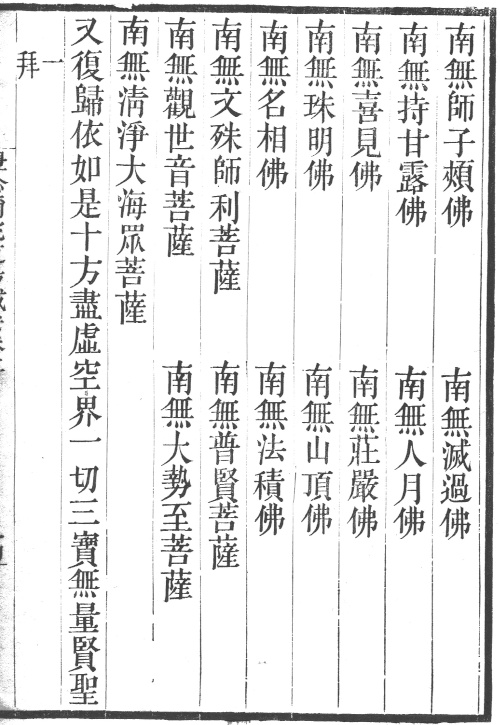 南無師子頰佛　南無滅過佛
南無持甘露佛　南無人月佛
南無喜見佛　南無莊嚴佛
南無珠明佛　南無山頂佛
南無名相佛　南無法積佛
南無文殊師利菩薩　南無普賢菩薩
南無觀世音菩薩　南無大勢至菩薩
南無淸淨大海眾菩薩
又復歸依如是十方盡虛空界一切三寶無量賢聖
一拜